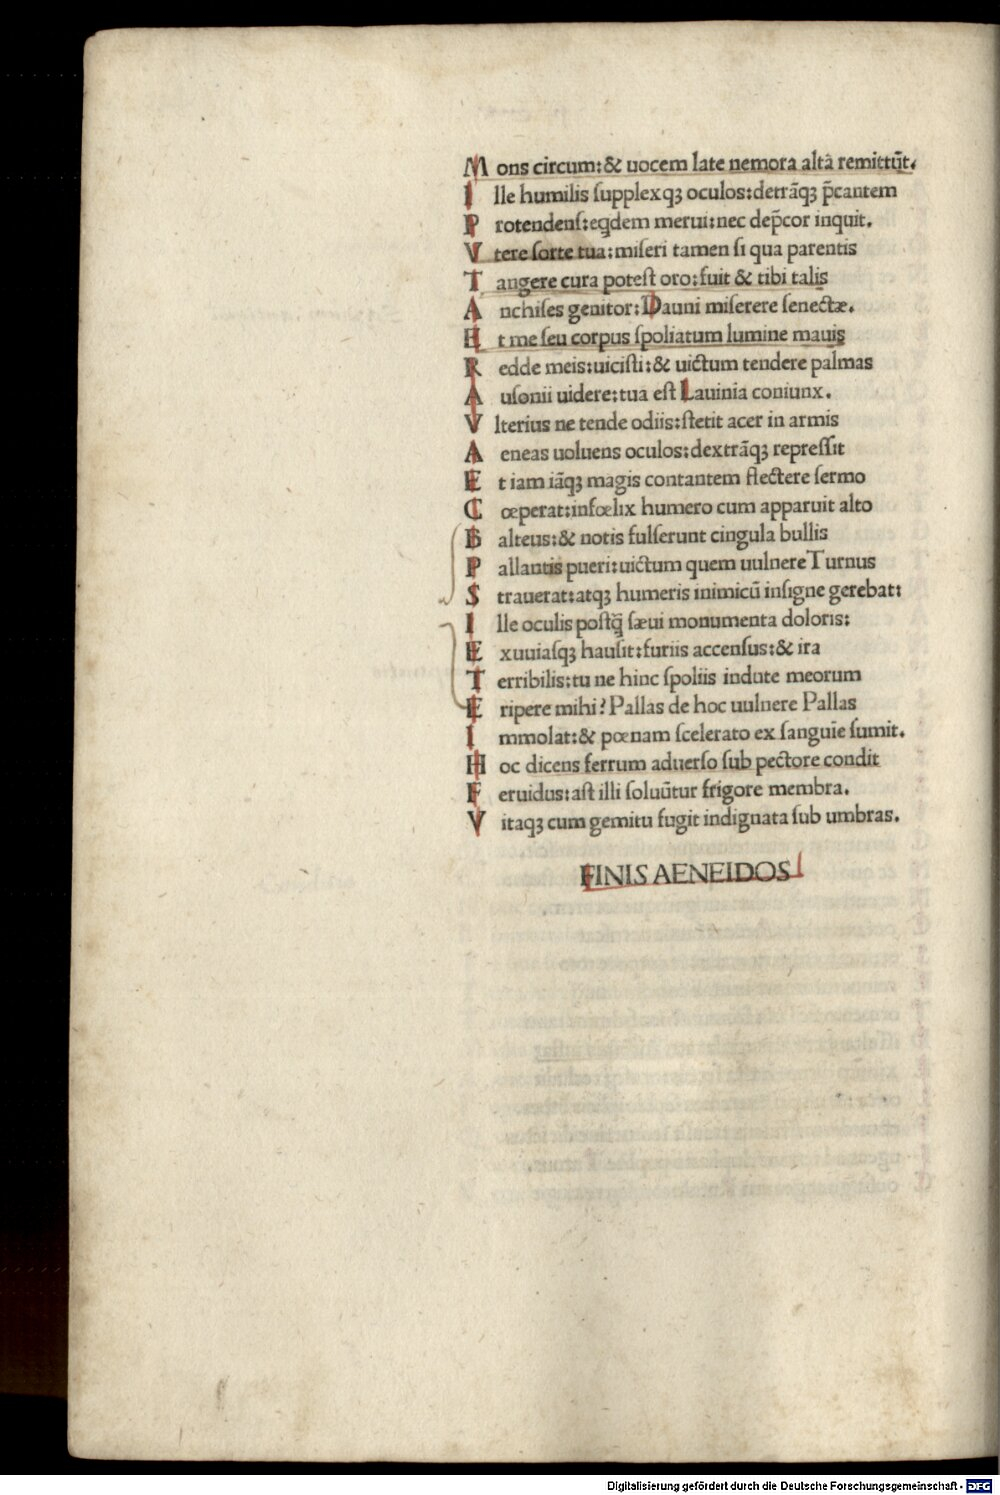 M ons circum:& uocem late nemora altā remittūt.
I lle humilis ſupplexqꝫ oculos:detrāqꝫ p̄cantem
P rotendenſ:eqdem merui:nec dep̄cor inquit.
V tere ſorte tua:miſeri tamen ſi qua parentis
T angere cura poteſt oro:fuit & tibi talis
A nchiſes genitor:Dauni miſerere ſenectæ.
E t me ſeu corpus ſpoliatum lumine mauis
R edde meis:uiciſti:& uictum tendere palmas
A uſonii uidere:tua eſt Lauinia coniunx.
V lterius ne tende odiis:ſtetit acer in armis
A eneas uoluens oculos:dextrāqꝫ repreſſit
E t iam iāqꝫ magis contantem flectere ſermo
C œperat:infœlix humero cum apparuit alto
B alteus:& notis fulſerunt cingula bullis
P allantis pueri:uictum quem uulnere Turnus
S trauerat:atqꝫ humeris inimicū inſigne gerebat:
I lle oculis poſtq̄ ſæui monumenta doloris:
E xuuiaſqꝫ hauſit:furiis accenſus:& ira
T erribilis:tu ne hinc ſpoliis indute meorum
E ripere mihi? Pallas de hoc uulnere Pallas
I mmolat:& pœnam ſcelerato ex ſanguīe ſumit.
H oc dicens ferrum aduerſo ſub pectore condit
F eruidus:aſt illi ſoluūtur frigore membra.
V itaqꝫ cum gemitu fugit indignata ſub umbras.
FINIS AENEIDOS
Digitalisierung gefördert durch die Deutsche Forschungsgemeinschaft - DFG